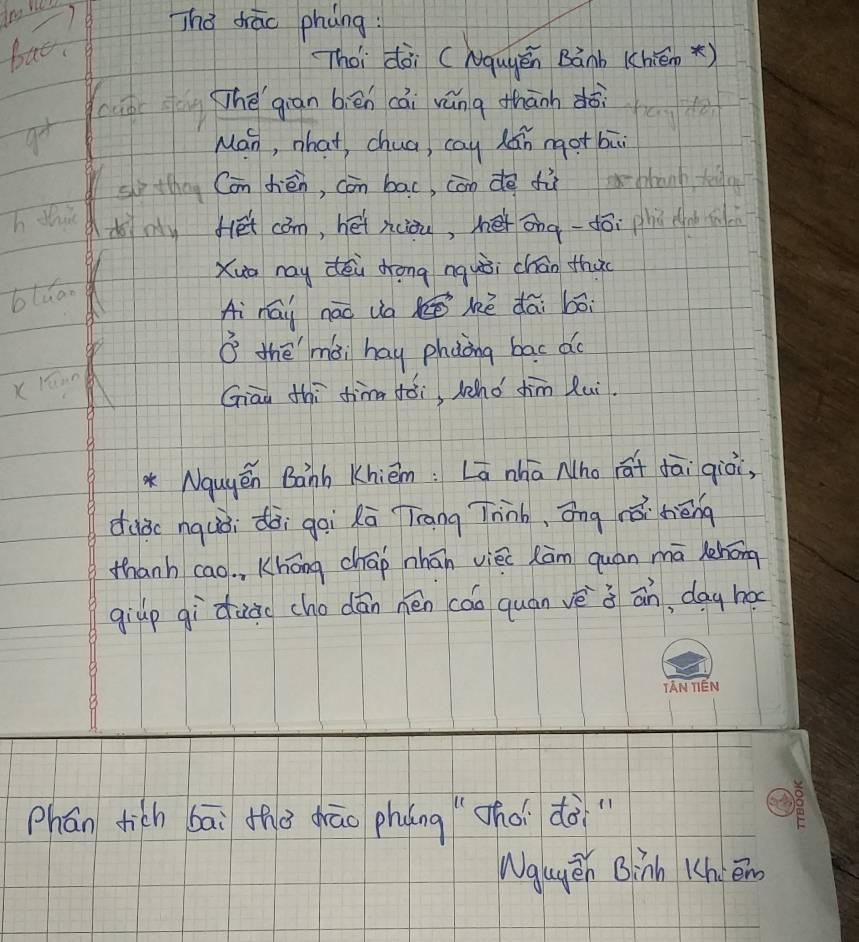 Thơ trào phúng:
Thói đời (Nguyễn Bảnh Khiêm *)
Thế gian biến cải vũng thành đồi
Mặn, nhạt, chua, cay lẫn ngọt bùi
Còn tiền, còn bạc, còn đệ tử
Hết cơm, hết rượu, hết ông - tôi
Xưa nay đều trọng người chân thực
Ai nấy nào ưa kẻ đãi bôi
Ở thế mới hay phường bạc ác
Giàu thì tìm tới, khó tìm lui.
* Nguyễn Bảnh Khiêm: Là nhà Nho rất tài giỏi,
được người đời gọi là Trạng Trình, ông nổi tiếng
thanh cao., Không chấp nhận việc làm quan mà không
giúp gì được cho dân nên cáo quan về ở ẩn, dạy học
TÂN TIẾN
Phân tích bài thơ trào phúng "Thói đời"
Nguyễn Bỉnh Khiêm
TTBOOK